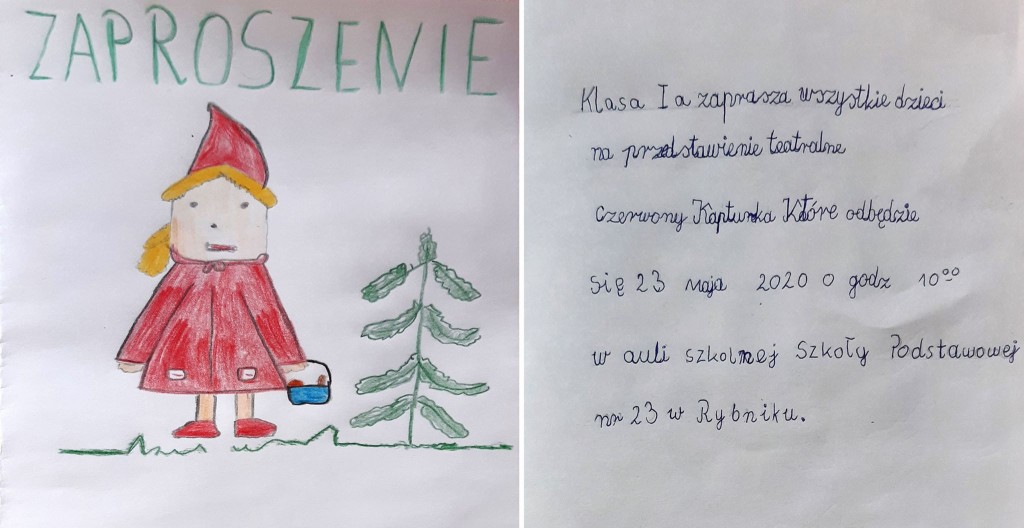 ZAPROSZENIE
Klasa I a zaprasza wszystkie dzieci
na przedstawienie teatralne
czerwony Kapturka Które odbędzie
się 23 maja 2020 o godz 10⁰⁰
w auli szkolnej Szkoły Podstawowej
nr 23 w Rybniku.